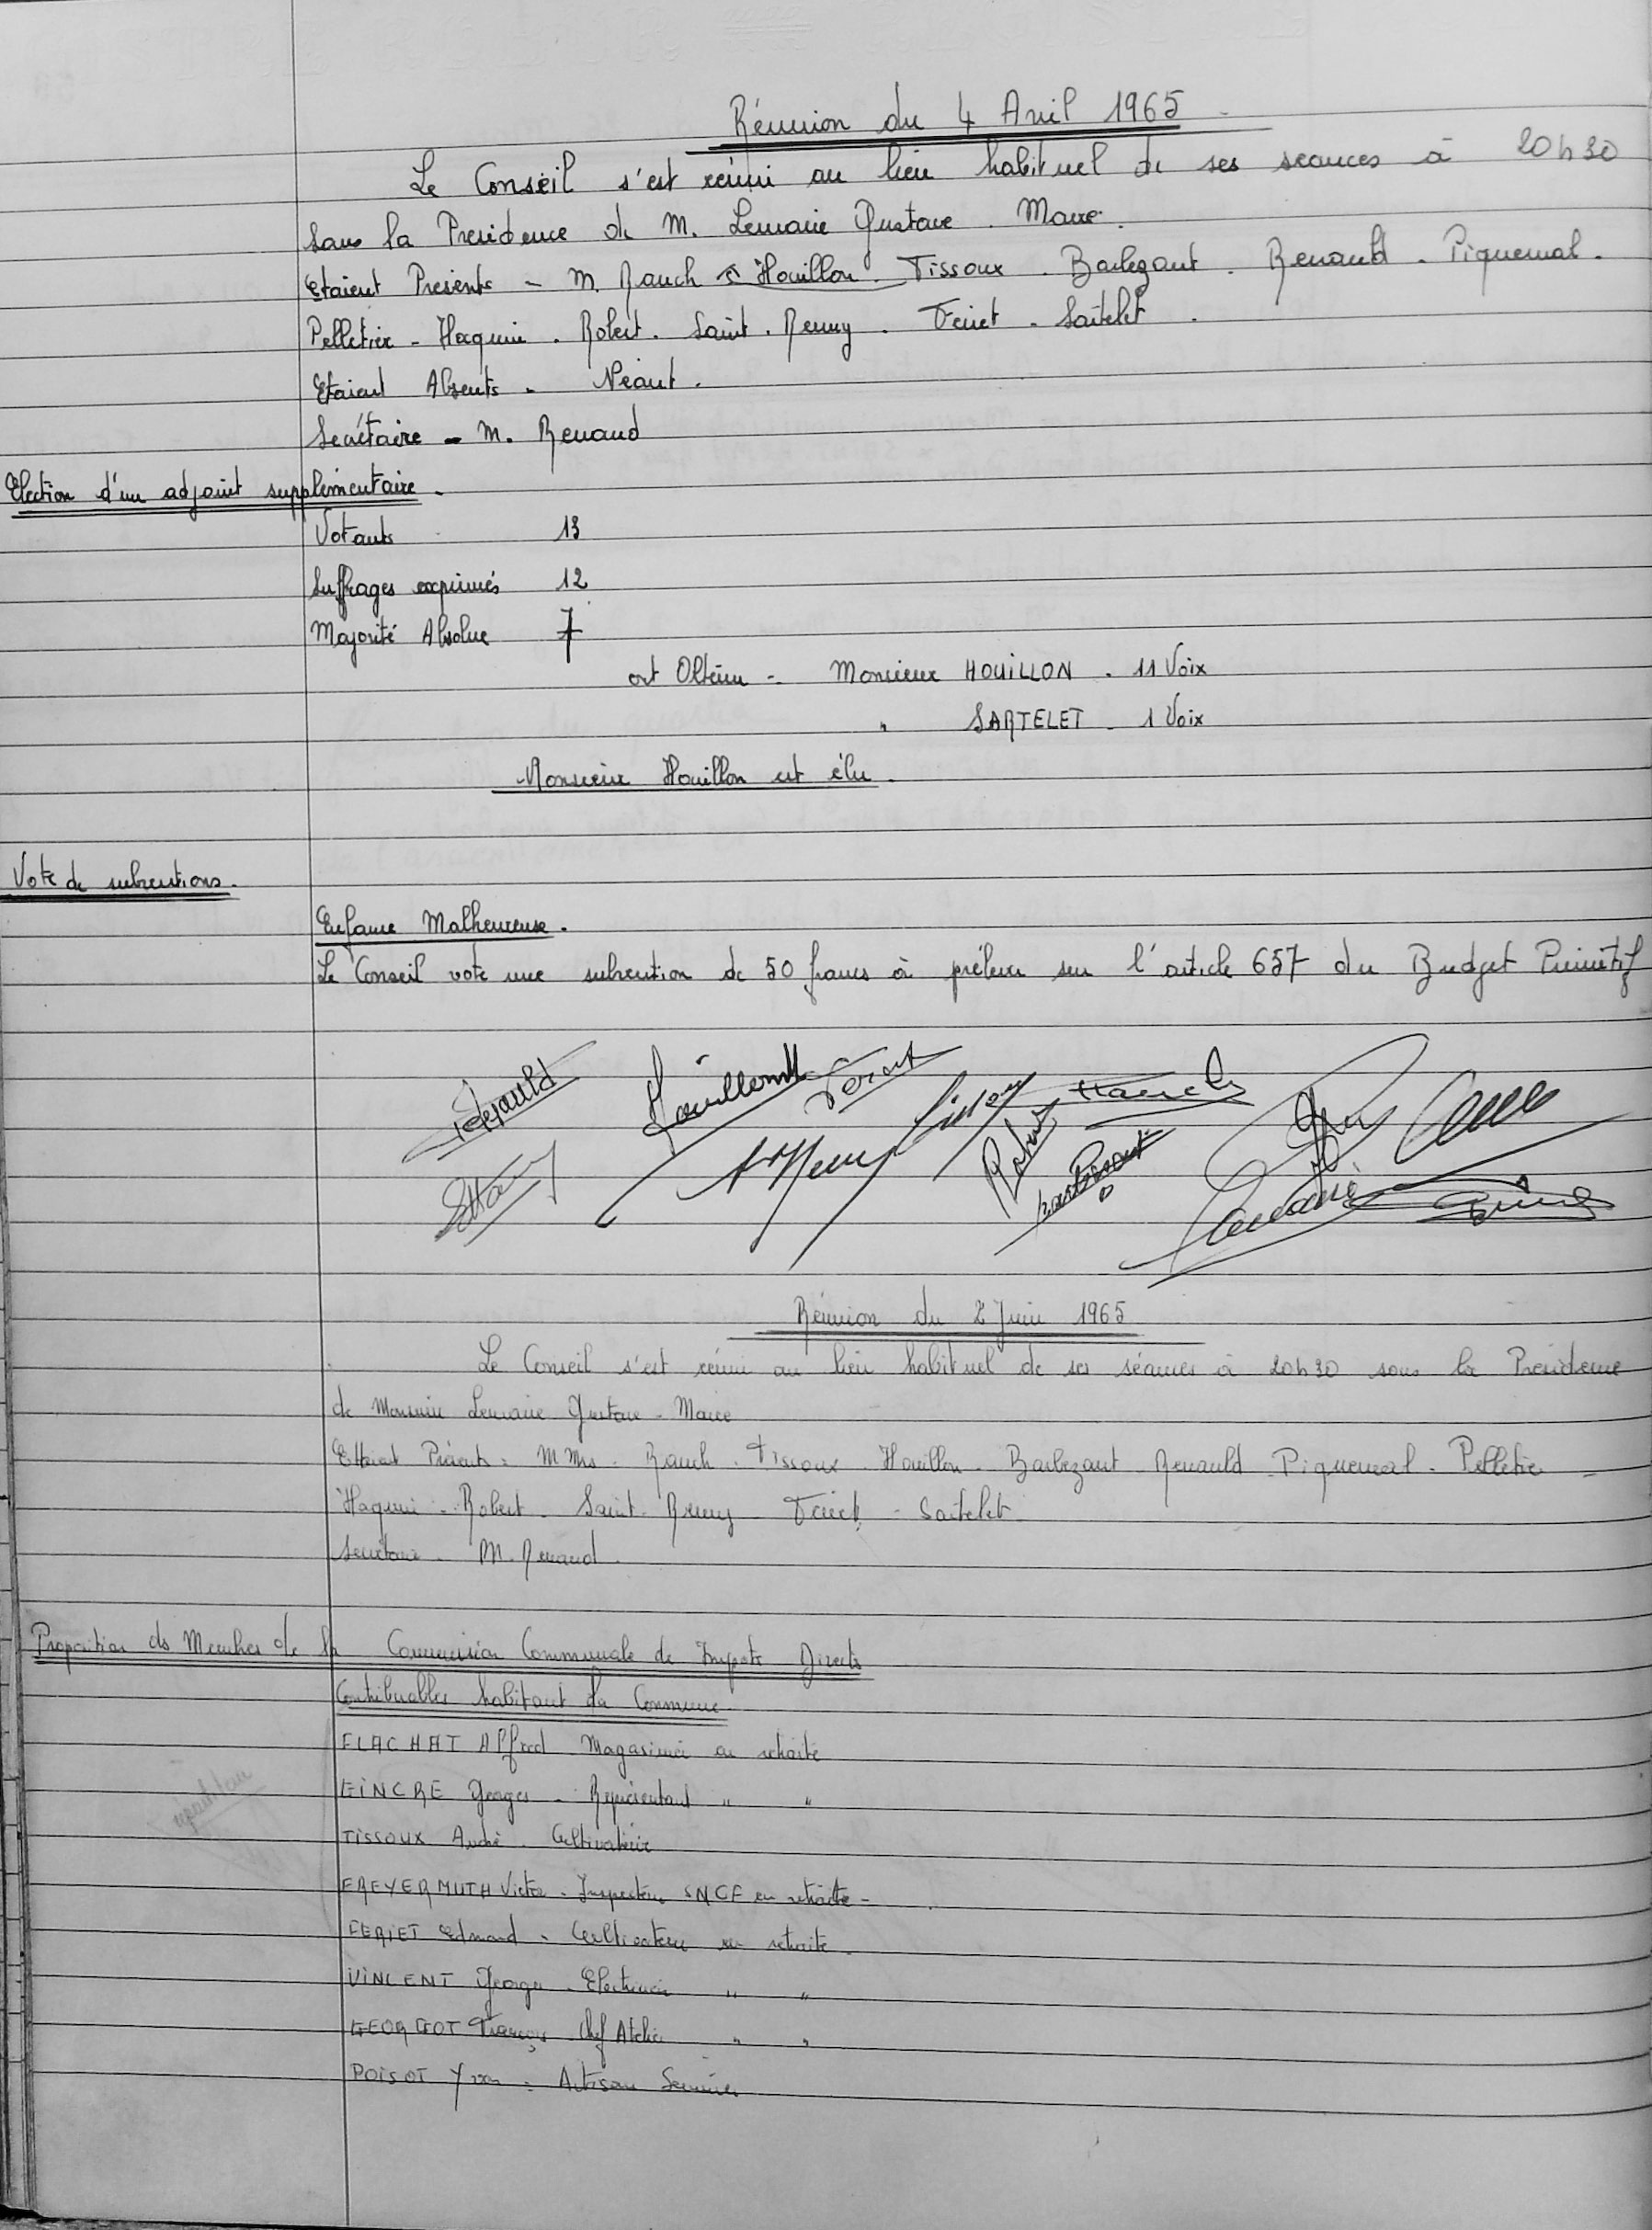 Réunion du 4 Avril 1965
Le Conseil s'est réuni au lieu habituel de ses seances à 20h30
sous la Presidence de M. Lemaire Gustave . Maire.
Etaient Presents - M. Rauch Houillon Tissoux . Barbezant . Renauld . Piquemal .
Pelletier - Haquin . Robert . Saint . Remy . Feriet . Sartelet .
Etaient Absents - Néant .
Secrétaire - M. Renaud
Election d'un adjoint supplémentaire -
Votants 13
Suffrages exprimés 12
Majorité Absolue 7
ont Obtenu - Monsieur HOUILLON . 11 Voix
" SARTELET . 1 Voix
Monsieur Houillon est élu .
Vote de subventions .
Enfance Malheureuse .
Le Conseil vote une subvention de 50 francs à prélever sur l'article 657 du Budget Primitif
Réunion du 2 Juin 1965
Le Conseil s'est réuni au lieu habituel de ses séances à 20h30 sous la Présidence
de Monsieur Lemaire Gustave - Maire
Etaient Présents : M Mrs . Rauch . Tissoux . Houillon . Barbezant . Renauld . Piquemal . Pelletier -
Haquin . Robert . Saint . Remy - Feriet - Sartelet
Secrétaire . M. Renaud .
Proposition des Membres de la Commission Communale de Impots Directs
Contribuables habitant la Commune
FLACHAT Alfred Magasinier en retraite
GINCRE Georges - Représentant " "
TISSOUX André . Cultivateur
FREYERMUTH Victor . Inspecteur SNCF en retraite -
FERIET Edmond - Cultivateur en retraite .
VINCENT Georges - Electricien " "
GEORGEOT François Chef Atelier " "
POISOT Yvon : Artisan Serrurier